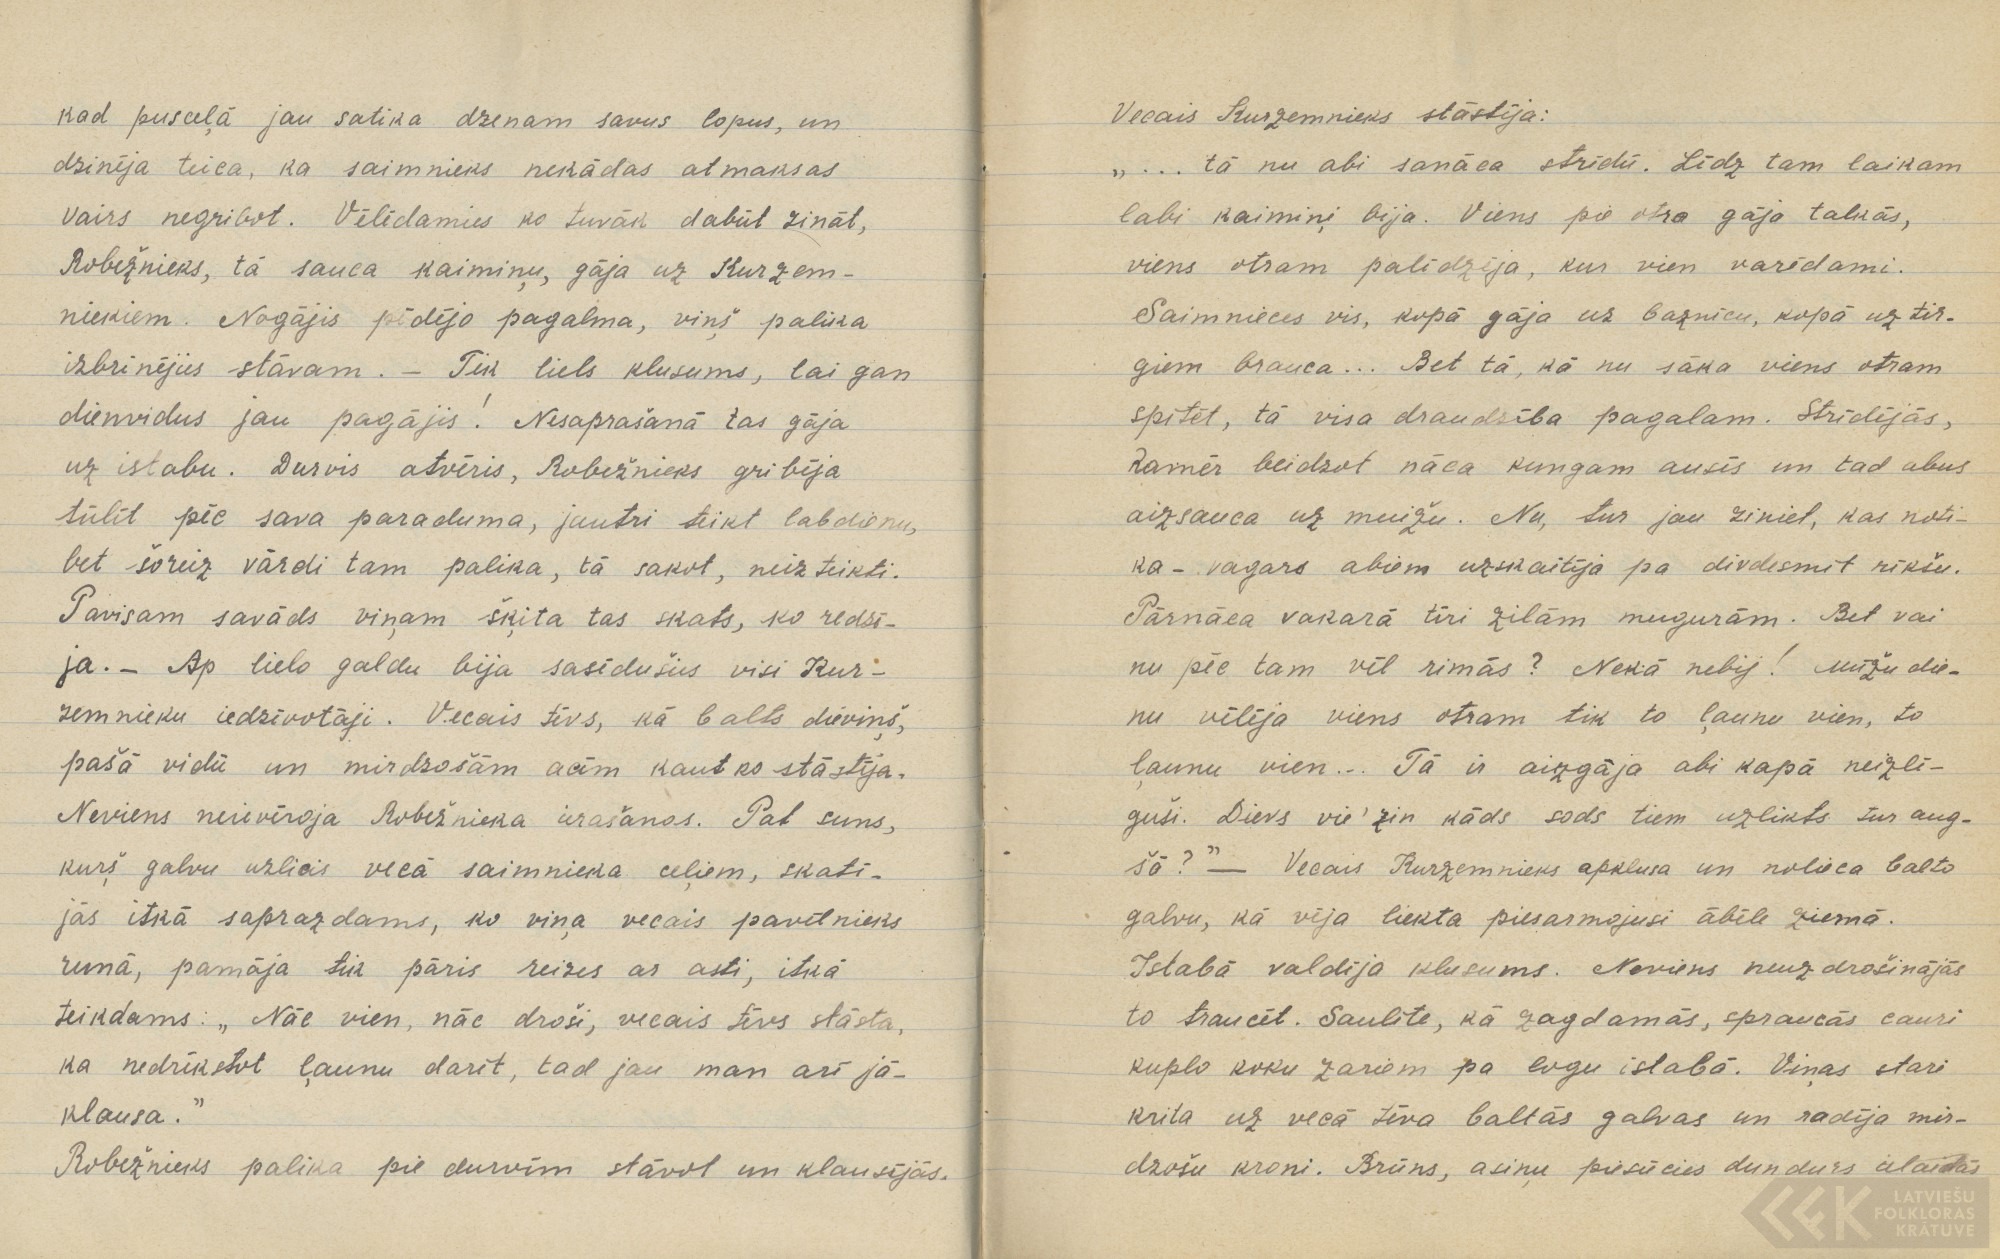 kad pusceļā jau satika dzenam savus lopus, un
dzinēja teica, ka saimnieks nekādas atmaksas
vairs negribot. Vēlēdamies ko tuvāk dabūt zināt,
Robežnieks, tā sauca kaimiņu, gāja uz Kurzem-
niekiem. Nogājis pēdējo pagalmā, viņš palika
izbrīnējies stāvam. - Tik liels klusums, lai gan
dienvidus jau pagājis! Nesaprašanā tas gāja
uz istabu. Durvis atvēris, Robežnieks gribēja
tūlīt pēc sava paraduma, jautri teikt labdienu,
bet šoreiz vārdi tam palika, tā sakot, neizteikti.
Pavisam savāds viņam šķita tas skats, ko redzē-
ja. - Ap lielo galdu bija sasēdušies visi Kur-
zemnieku iedzīvotāji. Vecais tēvs, kā balts dieviņš,
pašā vidū un mirdzošām acīm kaut ko stāstīja.
Neviens neievēroja Robežnieka ierašanos. Pat suns,
kurš galvu uzlicis vecā saimnieka ceļiem, skatī-
jās itkā saprazdams, ko viņa vecais pavēlnieks
runā, pamāja tik pāris reizes ar asti, itkā
teikdams: „Nāc vien, nāc droši, vecais tēvs stāsta,
ka nedrīkstot ļaunu darīt, tad jau man arī jā-
klausa.”
Robežnieks palika pie durvīm stāvot un klausījās.
Vecais Kurzemnieks stāstīja:
„... tā nu abi sanāca strīdū. Līdz tam laikam
labi kaimiņi bija. Viens pie otra gāja talkās,
viens otram palīdzēja, kur vien varēdami.
Saimnieces vis, kopā gāja uz baznīcu, kopā uz tir-
giem brauca... Bet tā, kā nu sāka viens otram
spītēt, tā visa draudzība pagalam. Strīdējās,
kamēr beidzot nāca kungam ausīs un tad abus
aizsauca uz muižu. Nu, tur jau ziniet, kas noti-
ka - vagars abiem uzskaitīja pa divdesmit rīkšu.
Pārnāca vakarā tīri zilām mugurām. Bet vai
nu pēc tam vēl rimās? Nekā nebij! Mūžu die-
nu vēlēja viens otram tik to ļaunu vien, to
ļaunu vien... Tā ir aizgāja abi kapā neizlī-
guši. Dievs vie' zin kāds sods tiem uzlikts tur aug-
šā?” — Vecais Kurzemnieks apklusa un nolieca balto
galvu, kā vēja liekta piesarmojusi ābele ziemā.
Istabā valdīja klusums. Neviens neuzdrošinājās
to traucēt. Saulīte, kā zagdamās, spraucās cauri
kuplo koku zariem pa logu istabā. Viņas stari
krita uz vecā tēva baltās galvas un radīja mir-
dzošu kroni. Brūns, asiņu piesūcies dundurs ielaidās
LATVIEŠU
FOLKLORAS
KRĀTUVE